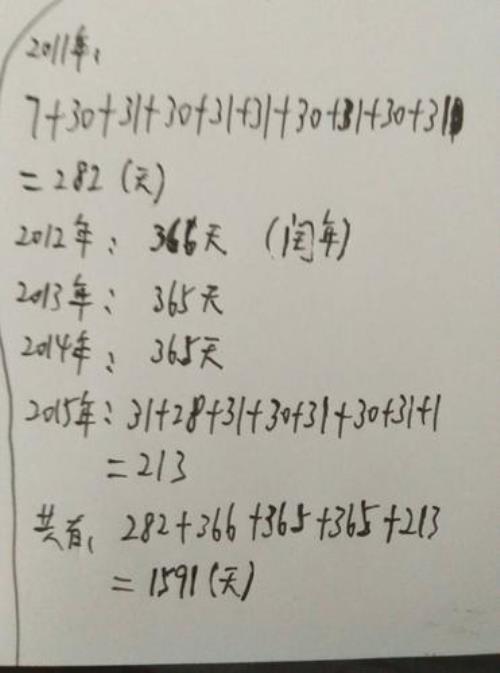 2011年:
7+30+31+30+31+31+30+31+30+31
=282(天)
2012年: 366天 (闰年)
2013年: 365天
2014年: 365天
2015年: 31+28+31+30+31+30+31+1
=213
共有: 282+366+365+365+213
=1591(天)